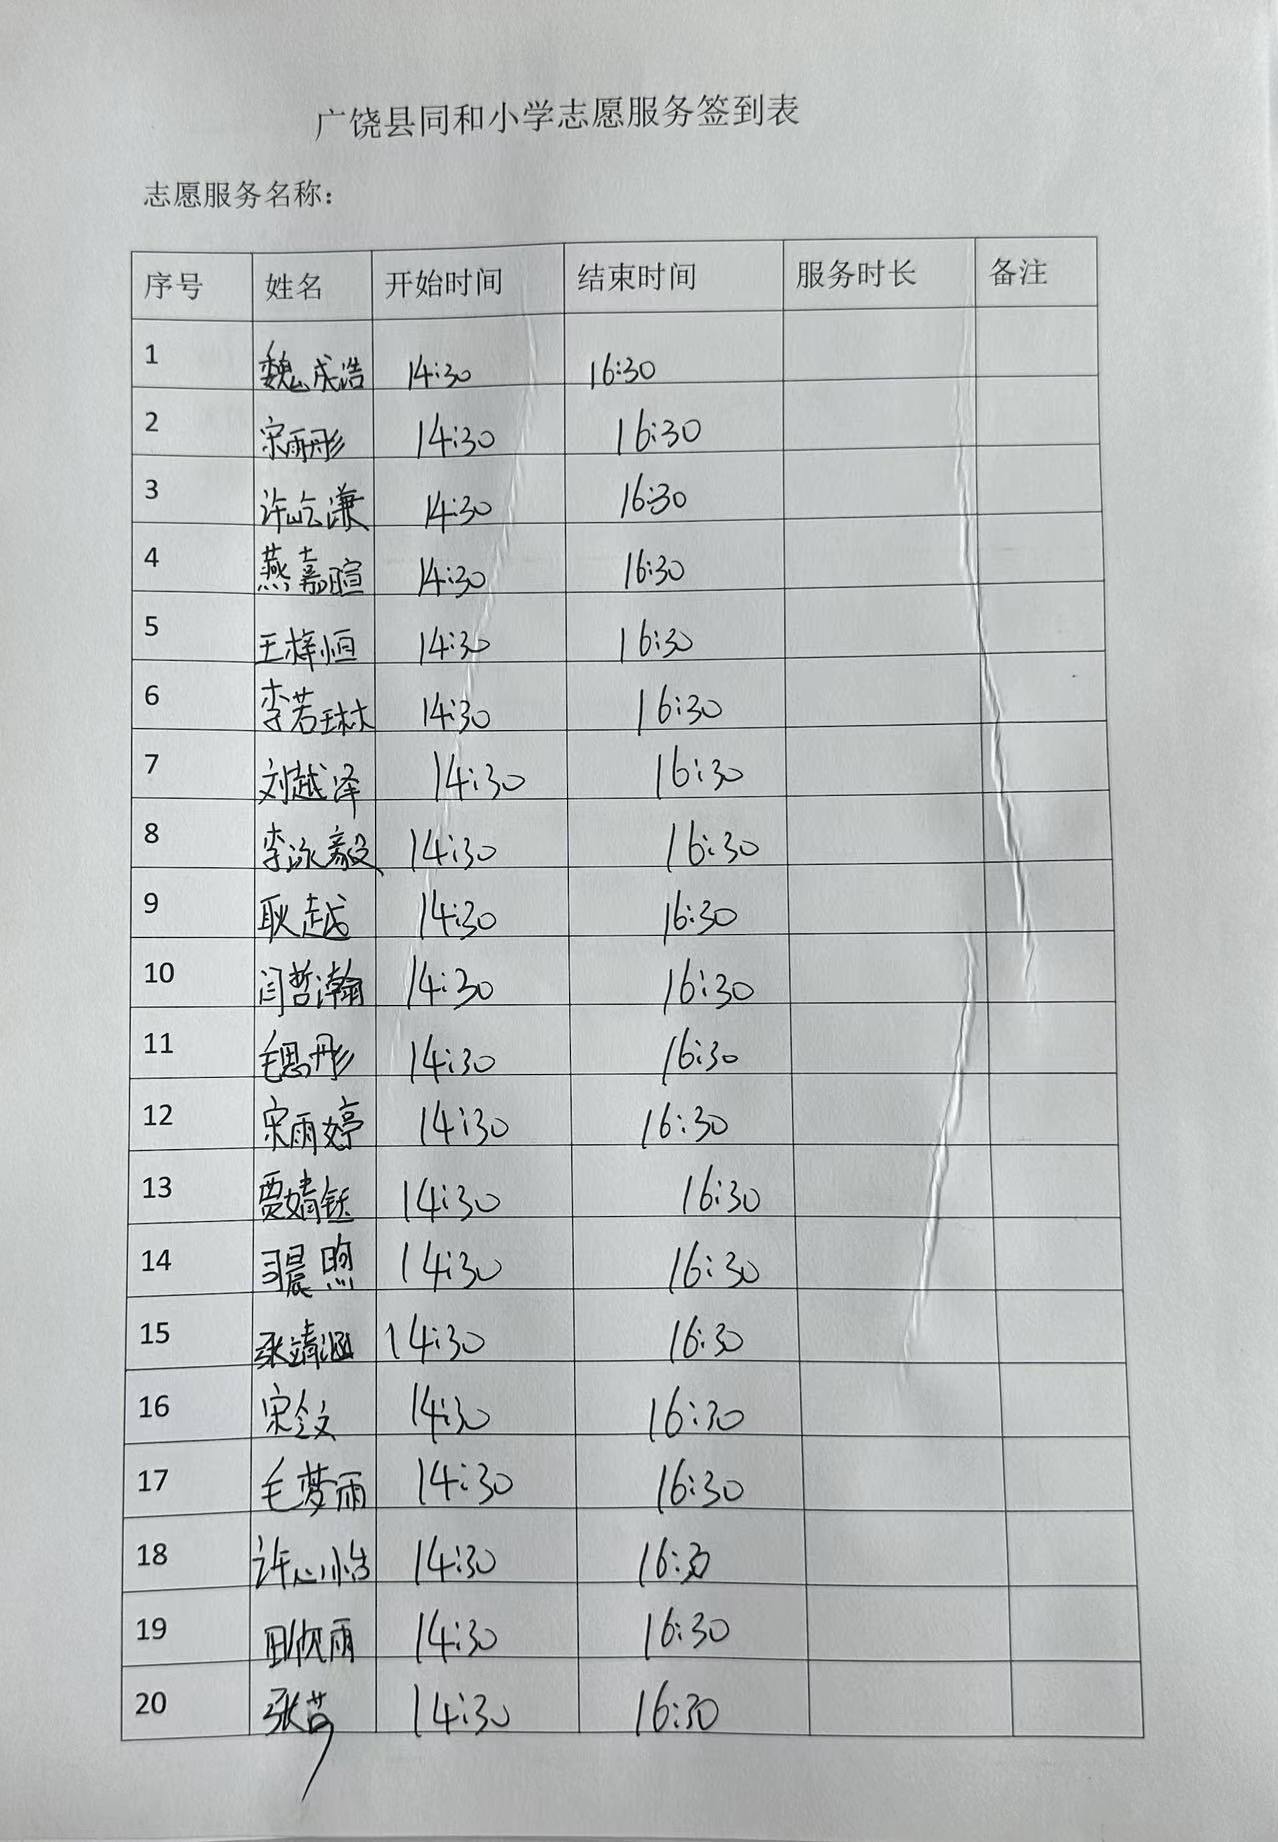 广饶县同和小学志愿服务签到表
志愿服务名称：
序号 姓名 开始时间 结束时间 服务时长 备注
1 魏成浩 14:30 16:30
2 宋雨彤 14:30 16:30
3 许屹谦 14:30 16:30
4 燕嘉暄 14:30 16:30
5 王梓恒 14:30 16:30
6 李若琳 14:30 16:30
7 刘越泽 14:30 16:30
8 李泳毅 14:30 16:30
9 耿越 14:30 16:30
10 闫哲瀚 14:30 16:30
11 毛思彤 14:30 16:30
12 宋雨婷 14:30 16:30
13 贾婧钰 14:30 16:30
14 司晨煦 14:30 16:30
15 张靖涵 14:30 16:30
16 14:30 16:30
17 毛梦雨 14:30 16:30
18 许心怡 14:30 16:30
19 14:30 16:30
20 14:30 16:30